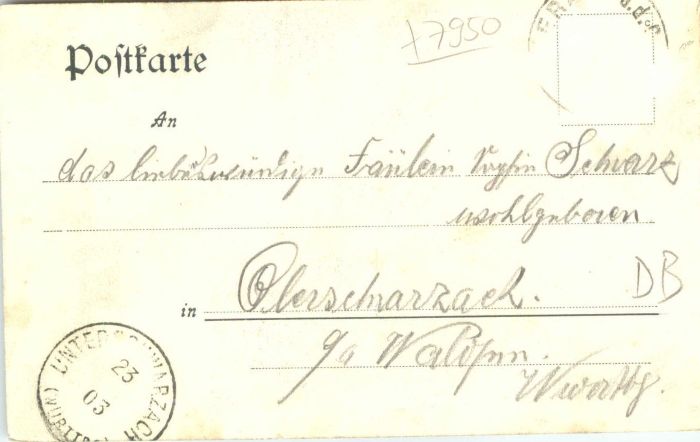 +7950
Postkarte
An
das liebenswürdige Fräulein Sophie Schwarz
wohlgeboren
in Oberschwarzach.
DB
o/a Waldsee.
Württbg.
UNTERSCHWARZACH
23
03
(WÜRTT